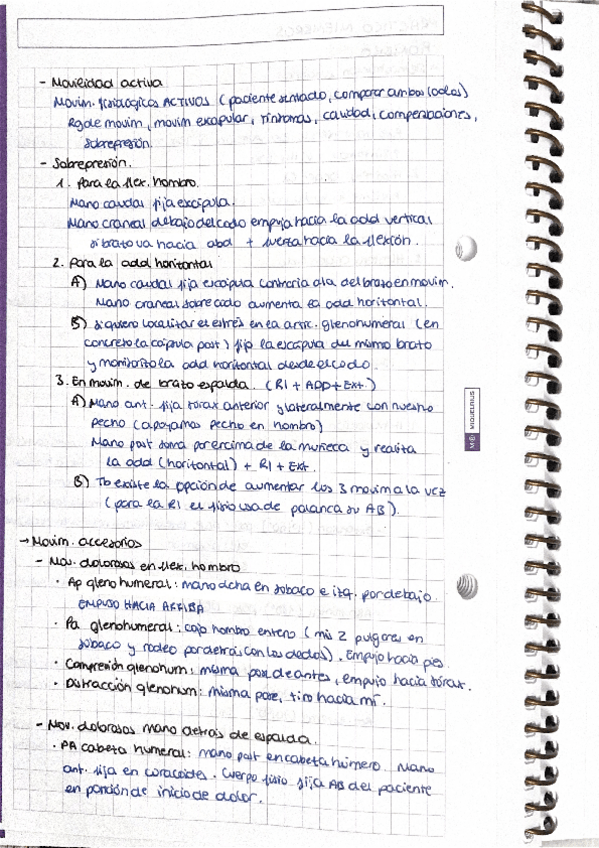 - Movilidad activa
Movim. fisiológicos ACTIVOS (paciente sentado, comparar ambos lados)
Rgo de movim, movim escapular, síntomas, calidad, compensaciones,
sobrepresión.
- Sobrepresión.
1. Para la flex. hombro.
Mano caudal fija escápula.
Mano craneal debajo del codo empuja hacia la add vertical
si brazo va hacia abd + fuerza hacia la flexión.
2. Para la add horizontal
A) Mano caudal fija escápula contraria a la del brazo en movim.
Mano craneal sobre codo aumenta la add horizontal.
B) si quiero localizar el estrés en la artic. glenohumeral (en
concreto la cápsula post) fijo la escápula del mismo brazo
y monitorizo la add horizontal desde el codo.
3. En movim. de brazo espalda. (RI + ADD + Ext.)
A) Mano ant. fija tórax anterior y lateralmente con nuestro
pecho (apoyamos pecho en hombro)
Mano post toma por encima de la muñeca y realiza
la add (horizontal) + RI + Ext.
B) Tb existe la opción de aumentar los 3 movim a la vez
(para la RI el fisio usa de palanca su AB).
→ Movim. accesorios
- Mov. dolorosos en flex. hombro
· Ap gleno humeral: mano dcha en sobaco e izq. por debajo.
EMPUJO HACIA ARRIBA
· Pa glenohumeral: cojo hombro entero (mis 2 pulgares en
sobaco y rodeo por detrás con los dedos). Empujo hacia pies.
· Compresión glenohum: misma pose de antes, empujo hacia tórax.
· Distracción glenohum: misma pose, tiro hacia mí.
- Mov. dolorosos mano detrás de espalda.
· PA cabeza humeral: mano post en cabeza húmero. Mano
ant. fija en coracoides. Cuerpo fisio fija AB del paciente
en porción de inicio de dolor.
MIQUELRIUS